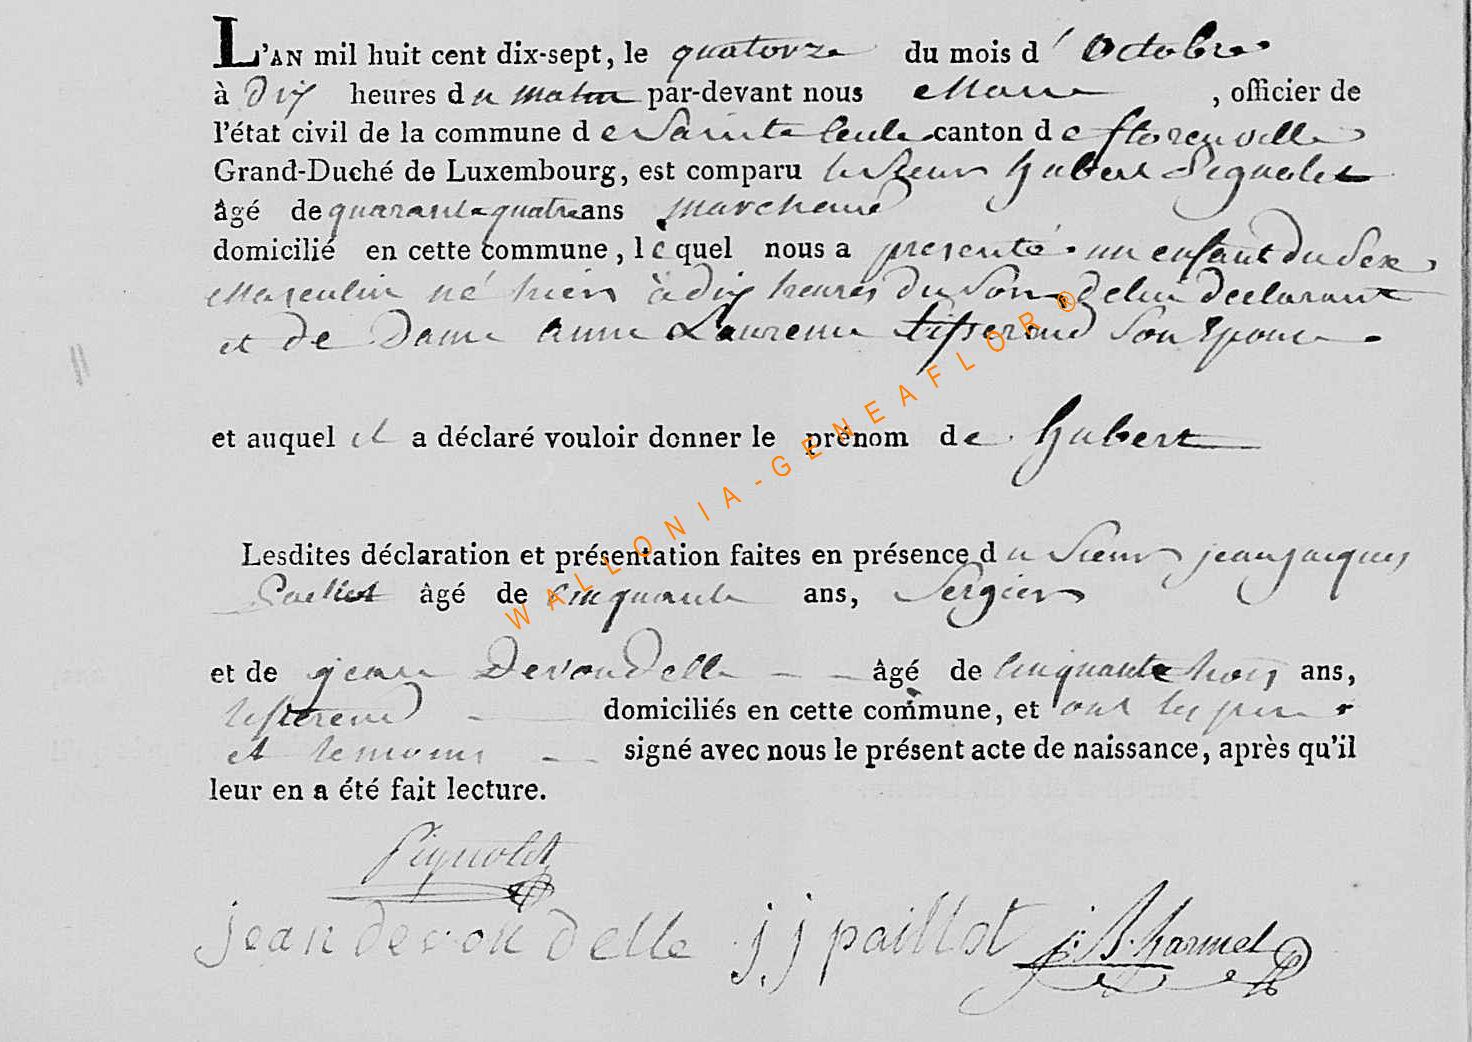 L'AN mil huit cent dix-sept, le quatorze du mois d' Octobre
à Dix heures du matin par-devant nous Maire , officier de
l'état civil de la commune de Sainte Cecile canton de florenville
Grand-Duché de Luxembourg, est comparu le Sieur hubert Pignolet
âgé de quarante quatre ans marchand
domicilié en cette commune, lequel nous a presenté un enfant du Sexe
Masculin né hier à dix heures du Soir, de lui declarant
et de Dame anne Laurence tisserand Son Epouse
et auquel il a déclaré vouloir donner le prénom de hubert
Lesdites déclaration et présentation faites en présence du Sieur jean jacques
Paillot âgé de cinquante ans, Sergier
et de jean Devondelle âgé de Cinquante trois ans,
tisserand domiciliés en cette commune, et ont les pere
et temoins signé avec nous le présent acte de naissance, après qu'il
leur en a été fait lecture.
Pignolet
jean devondelle j j paillot j: B. harmel
WALLONIA-GENEAFLOR®